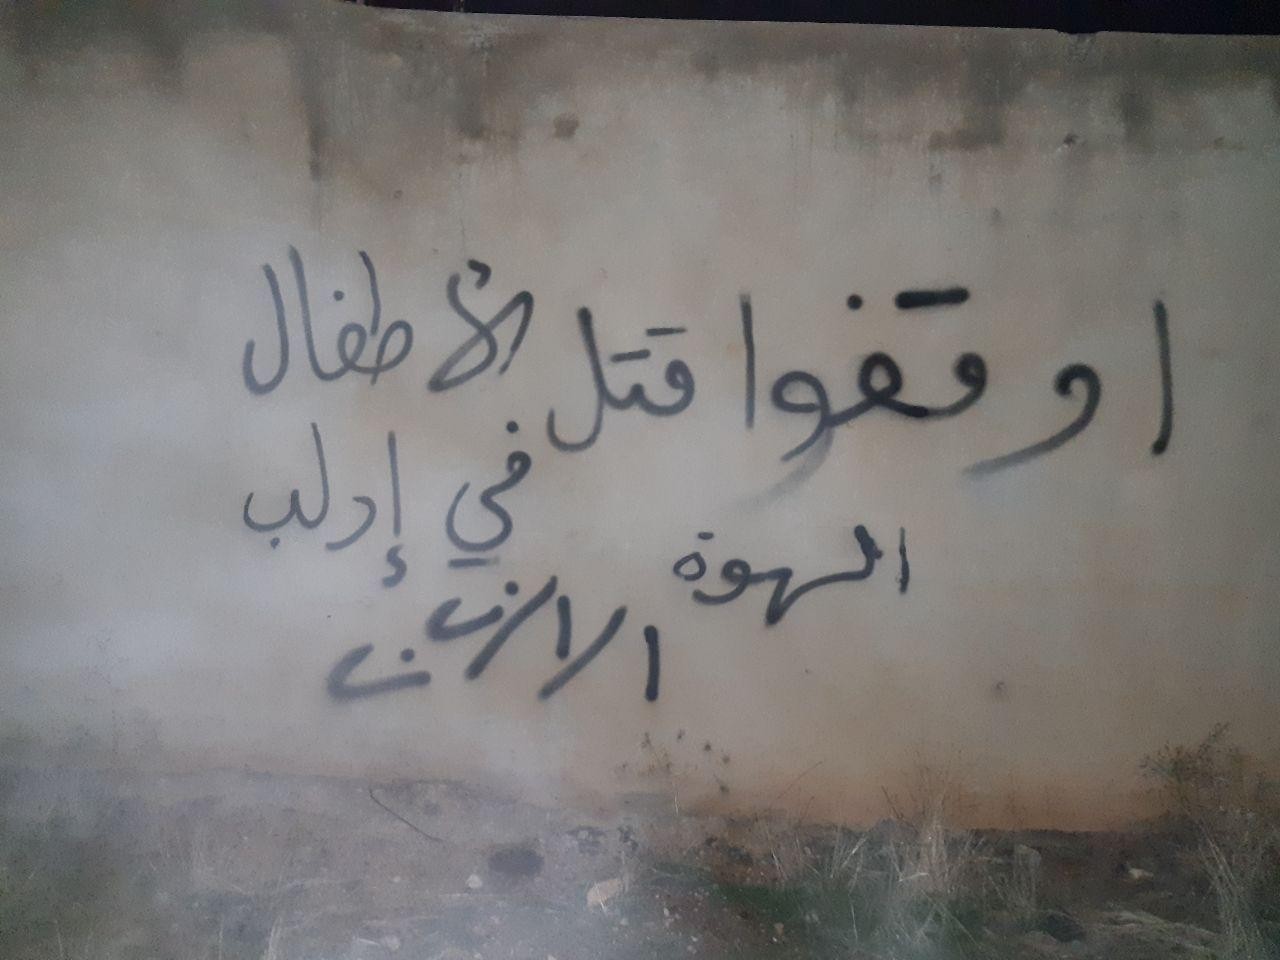 اوقفوا قتل الأطفال
في إدلب
الهوة